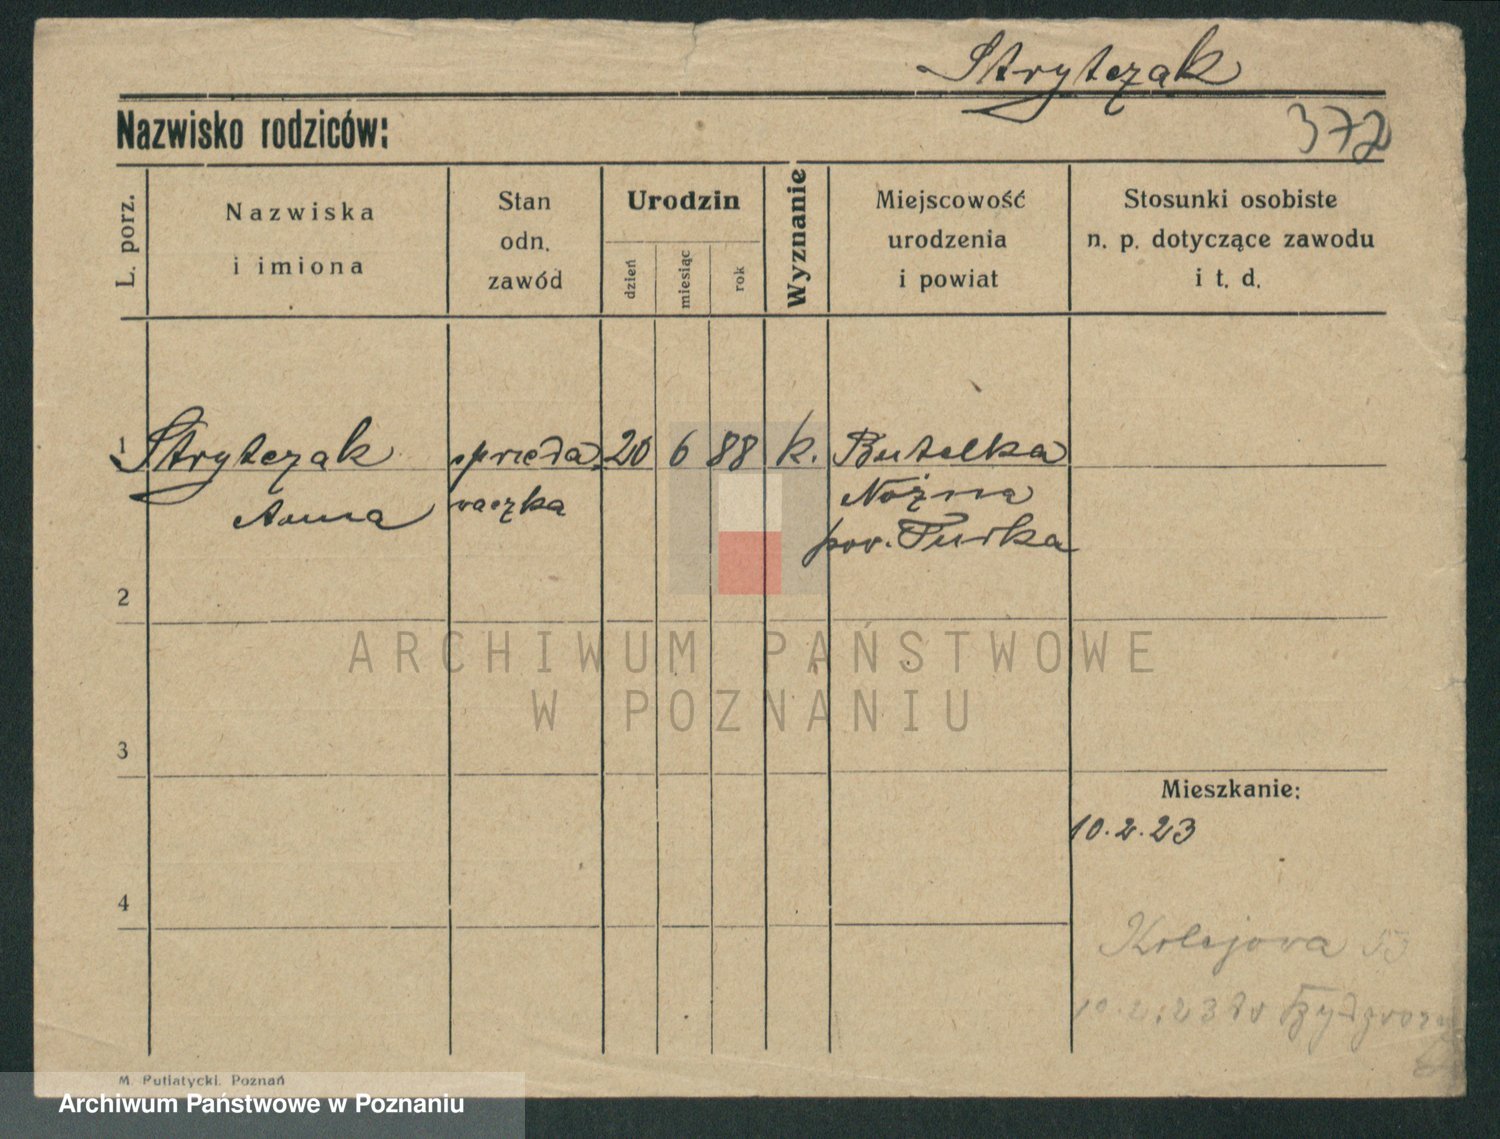 Strytczak
Nazwisko rodziców:
372
L. porz.
Nazwiska
i imiona
Stan
odn.
zawód
Urodzin
dzień
miesiąc
rok
Wyznanie
Miejscowość
urodzenia
i powiat
Stosunki osobiste
n. p. dotyczące zawodu
i t. d.
1 Strytczak sprzeda 20 6 88 k. Butelka
Anna waczka Nożna
pow. Turka
2
ARCHIWUM PAŃSTWOWE
W POZNANIU
3
Mieszkanie:
10.2.23
4
Kolejowa 53
10.2.23 do
M. Putiatycki. Poznań
Archiwum Państwowe w Poznaniu